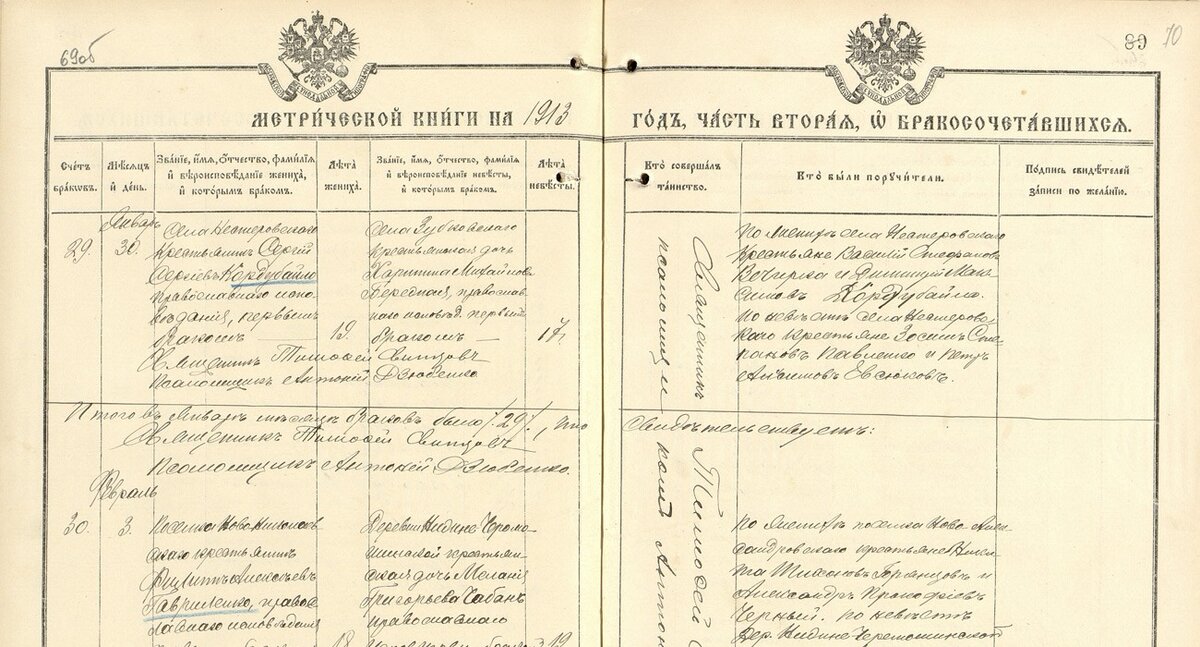 69об
89 70
МЕТРИ́ЧЕСКОЙ КНИ́ГИ НА 1913
ГО́ДЪ, ЧА́СТЬ ВТОРА́Я, Ѡ БРАКОСОЧЕТА́ВШИХСЯ.
Сче́тъ бра́ковъ.
Мѣ́сяцъ и́ де́нь.
Зва́ніе, и́мя, о́тчество, фами́лія и́ вѣроисповѣ́даніе жениха́, и́ кото́рымъ бра́комъ.
Лѣ́та жениха́.
Зва́ніе, и́мя, о́тчество, фами́лія и́ вѣроисповѣ́даніе невѣ́сты, и́ кото́рымъ бра́комъ.
Лѣ́та невѣ́сты.
Кто̀ соверша́лъ та́инство.
Кто̀ бы́ли поручи́тели.
По́дпись свидѣ́телей за́писи по жела́нію.
Январь
29. 30.
Села Нестеровскаго
крестьянинъ Сергій
Сергіевъ Кордубайло
православнаго испо-
вѣданія, первымъ
бракомъ 19.
Села Зубковскаго
крестьянская дочь
Харитина Михайлова
Бередная, православ
наго исповѣд. первымъ
бракомъ 17.
Священникъ Тимофей
Псаломщикъ Антоній Дзюбенко
По жениху села Нестеровскаго
крестьяне Василій Стефановъ
Вечирка и Димитрій Мак-
симовъ Кордубайло.
по невѣстѣ села Нестеровс
каго крестьяне Зосимъ Сте
пановъ Павленко и Петръ
Евсюковъ.
Священникъ Тимофей
псаломщикъ Антон
Итого въ Январѣ мѣсяцѣ браковъ было /29/, что
Свидѣтельствуетъ:
Священникъ Тимофей
Псаломщикъ Антоній Дзюбенко.
Февраль
30. 3.
Поселка Ново-Николаев
скаго крестьянинъ
Алексѣевъ
Гавриленко, правос
лавнаго исповѣданія
18
Деревни
крестьян-
ская дочь Меланія
Григорьева Чабан
православнаго
19
По жениху поселка Ново-Алек
сандровскаго крестьяне Ники
та Тихоновъ и
Александръ Прокофіевъ
Черный. по невѣстѣ
дер.